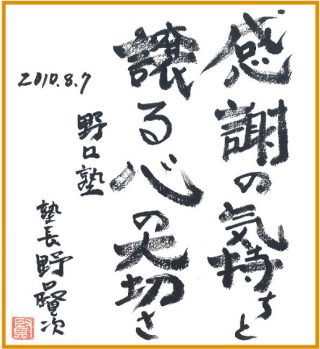 感謝の気持ちと
譲る心の大切さ
2010.8.7
野口塾
塾長 野口賢次